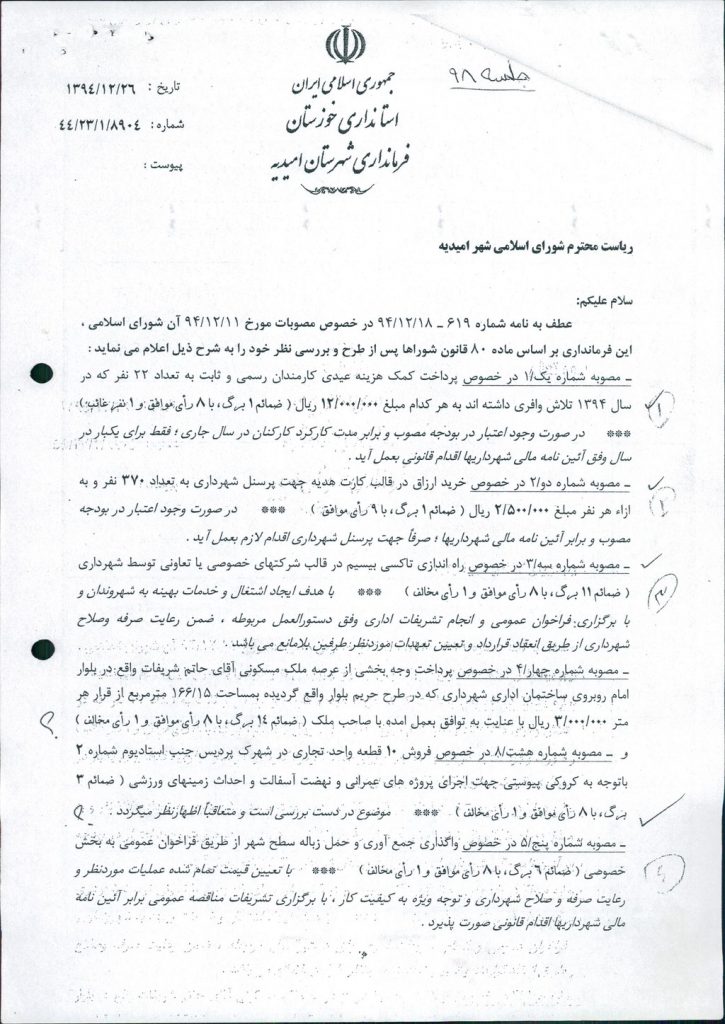 جلسه ۹۸
جمهوری اسلامی ایران
استانداری خوزستان
فرمانداری شهرستان امیدیه
تاریخ : ۱۳۹٤/۱۲/۲۶
شماره: ٤٤/۲۳/۱/۸۹۰٤
پیوست :
ریاست محترم شورای اسلامی شهر امیدیه
سلام علیکم:
عطف به نامه شماره ۶۱۹ ـ ۹۴/۱۲/۱۸ در خصوص مصوبات مورخ ۹۴/۱۲/۱۱ آن شورای اسلامی ،
این فرمانداری بر اساس ماده ۸۰ قانون شوراها پس از طرح و بررسی نظر خود را به شرح ذیل اعلام می نماید :
ـ مصوبه شماره یک/۱ در خصوص پرداخت کمک هزینه عیدی کارمندان رسمی و ثابت به تعداد ۲۲ نفر که در
سال ۱۳۹۴ تلاش وافری داشته اند به هر کدام مبلغ ۱۲/۰۰۰/۰۰۰ ریال ( ضمائم ۱ برگ، با ۸ رأی موافق و ۱ نفر غائب)
*** در صورت وجود اعتبار در بودجه مصوب و برابر مدت کارکرد کارکنان در سال جاری ؛ فقط برای یکبار در
سال وفق آئین نامه مالی شهرداریها اقدام قانونی بعمل آید .
ـ مصوبه شماره دو/۲ در خصوص خرید ارزاق در قالب کارت هدیه جهت پرسنل شهرداری به تعداد ۳۷۰ نفر و به
ازاء هر نفر مبلغ ۲/۵۰۰/۰۰۰ ریال ( ضمائم ۱ برگ، با ۹ رأی موافق ) *** در صورت وجود اعتبار در بودجه
مصوب و برابر آئین نامه مالی شهرداریها ؛ صرفاً جهت پرسنل شهرداری اقدام لازم بعمل آید .
ـ مصوبه شماره سه/۳ در خصوص راه اندازی تاکسی بیسیم در قالب شرکتهای خصوصی یا تعاونی توسط شهرداری
( ضمائم ۱۱ برگ، با ۸ رأی موافق و ۱ رأی مخالف ) *** با هدف ایجاد اشتغال و خدمات بهینه به شهروندان و
با برگزاری فراخوان عمومی و انجام تشریفات اداری وفق دستورالعمل مربوطه ، ضمن رعایت صرفه وصلاح
شهرداری از طریق انعقاد قرارداد و تعیین تعهدات موردنظر طرفین بلامانع می باشد .
ـ مصوبه شماره چهار/۴ در خصوص پرداخت وجه بخشی از عرصه ملک مسکونی آقای حاتم شریفات واقع در بلوار
امام روبروی ساختمان اداری شهرداری که در طرح حریم بلوار واقع گردیده بمساحت ۱۶۶/۱۵ مترمربع از قرار هر
متر ۳/۰۰۰/۰۰۰ ریال با عنایت به توافق بعمل امده با صاحب ملک ( ضمائم ۱۴ برگ، با ۸ رأی موافق و ۱ رأی مخالف )
و ـ مصوبه شماره هشت/۸ در خصوص فروش ۱۰ قطعه واحد تجاری در شهرک پردیس جنب استادیوم شماره ۲
باتوجه به کروکی پیوستی جهت اجرای پروژه های عمرانی و نهضت آسفالت و احداث زمینهای ورزشی ( ضمائم ۳
برگ، با ۸ رأی موافق و ۱ رأی مخالف ) . *** موضوع در دست بررسی است و متعاقباً اظهارنظر میگردد .
ـ مصوبه شماره پنج/۵ در خصوص واگذاری جمع آوری و حمل زباله سطح شهر از طریق فراخوان عمومی به بخش
خصوصی ( ضمائم ۶ برگ، با ۸ رأی موافق و ۱ رأی مخالف ) *** با تعیین قیمت تمام شده عملیات موردنظر و
رعایت صرفه و صلاح شهرداری و توجه ویژه به کیفیت کار ، با برگزاری تشریفات مناقصه عمومی برابر آئین نامه
مالی شهرداریها اقدام قانونی صورت پذیرد .